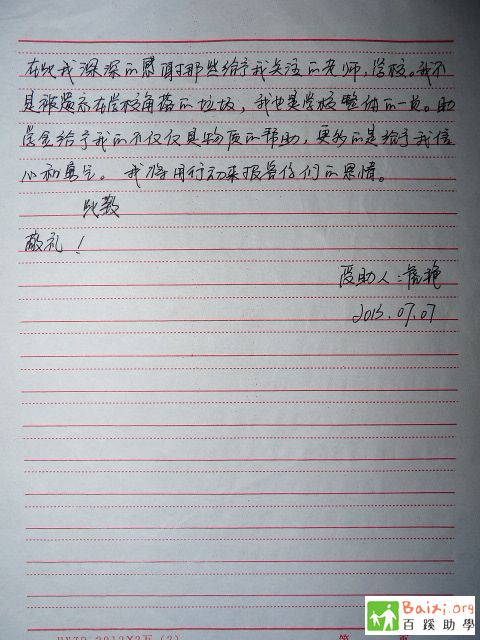 在此我深深的感谢那些给予我关注的老师,学校。我不
是被遗忘在学校角落的垃圾,我也是学校整体的一员。助
学金给予我的不仅仅是物质的帮助,更多的是给予我信
心和勇气。我将用行动来报答你们的恩情。
此致
敬礼!
受助人:艳
2013.07.07
Baixi.org
百蹊助學